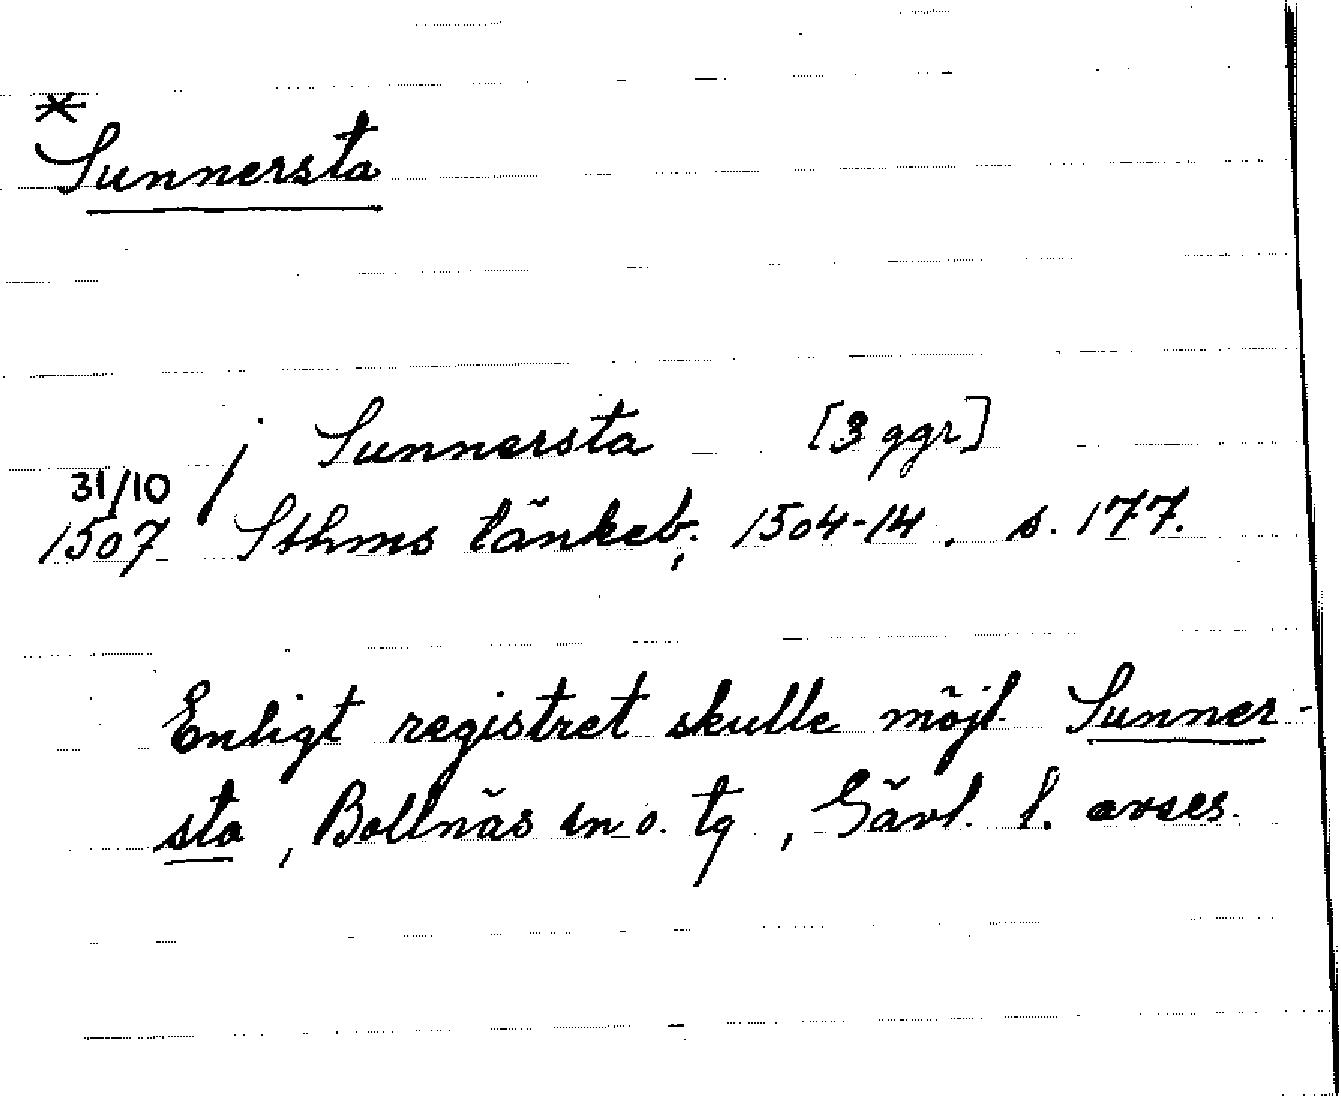 *
Sunnersta
j Sunnersta [3 ggr]
31/10
1507 Sthms tänkeb., 1504-14, s. 177.
Enligt registret skulle möjl. Sunner-
sta, Bollnäs sn o. tg, Gävl. l. avses.